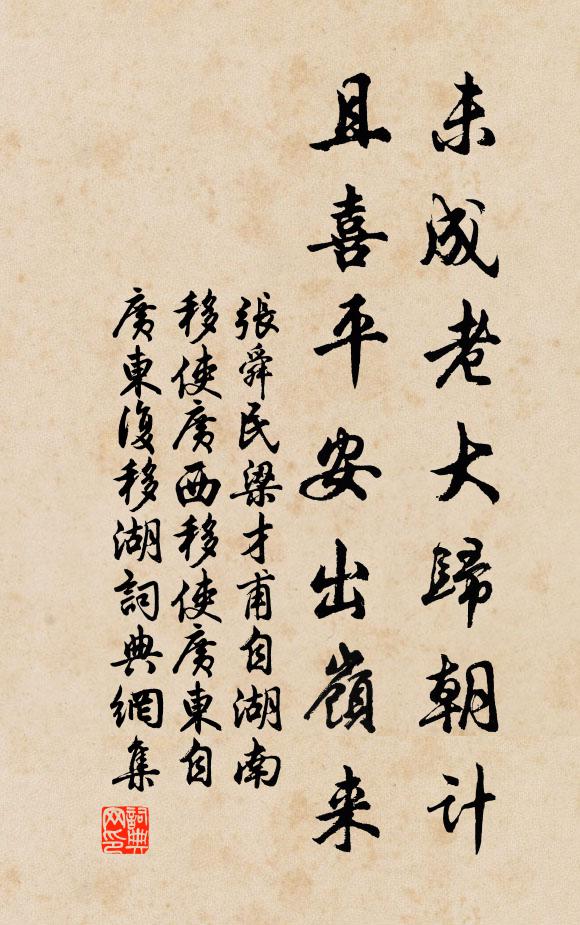 未成老大歸朝计
且喜平安出嶺来
張舜民梁才甫自湖南
移使廣西移使廣東自
廣東復移湖詞典網集
詞典
网印